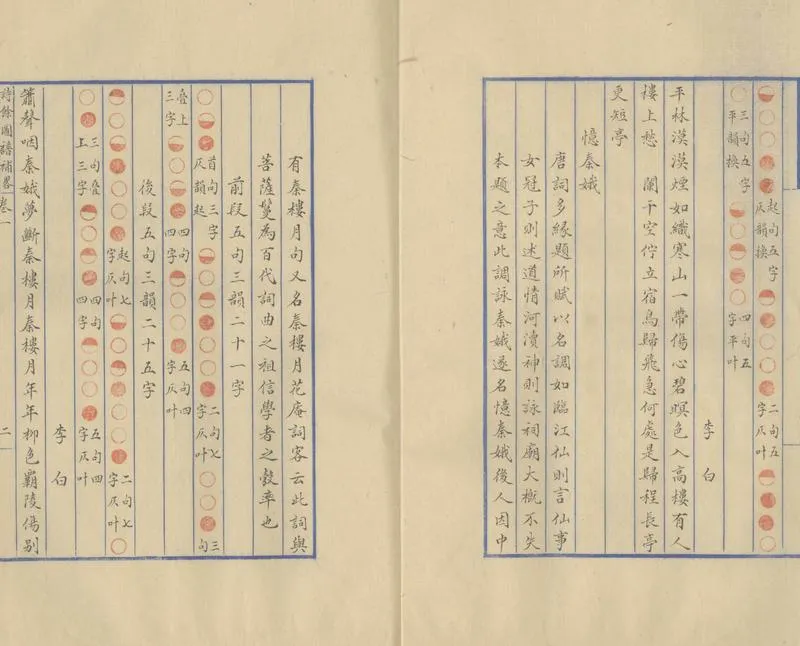 起句五字仄韻換 二句五字仄叶
三句五字平韻換 四句五字平叶
李白
平林漠漠煙如織寒山一帶傷心碧暝色入高樓有人
樓上愁 闌干空佇立宿鳥歸飛急何處是歸程長亭
更短亭
憶秦娥
唐詞多緣題所賦以名調如臨江仙則言仙事
女冠子則述道情河瀆神則詠祠廟大概不失
本題之意此調詠秦娥遂名憶秦娥後人因中
有秦樓月句又名秦樓月花庵詞客云此詞與
菩薩鬘為百代詞曲之祖信學者之彀率也
前段五句三韻二十一字
首句三字仄韻起 二句七字仄叶 三句
疊上三字 四句四字 五句四字仄叶
後段五句三韻二十五字
起句七字仄叶 二句七字仄叶
三句疊上三字 四句四字 五句四字仄叶
李白
簫聲咽秦娥夢斷秦樓月秦樓月年年柳色霸陵傷別
詩餘圖譜補畧 卷一 二